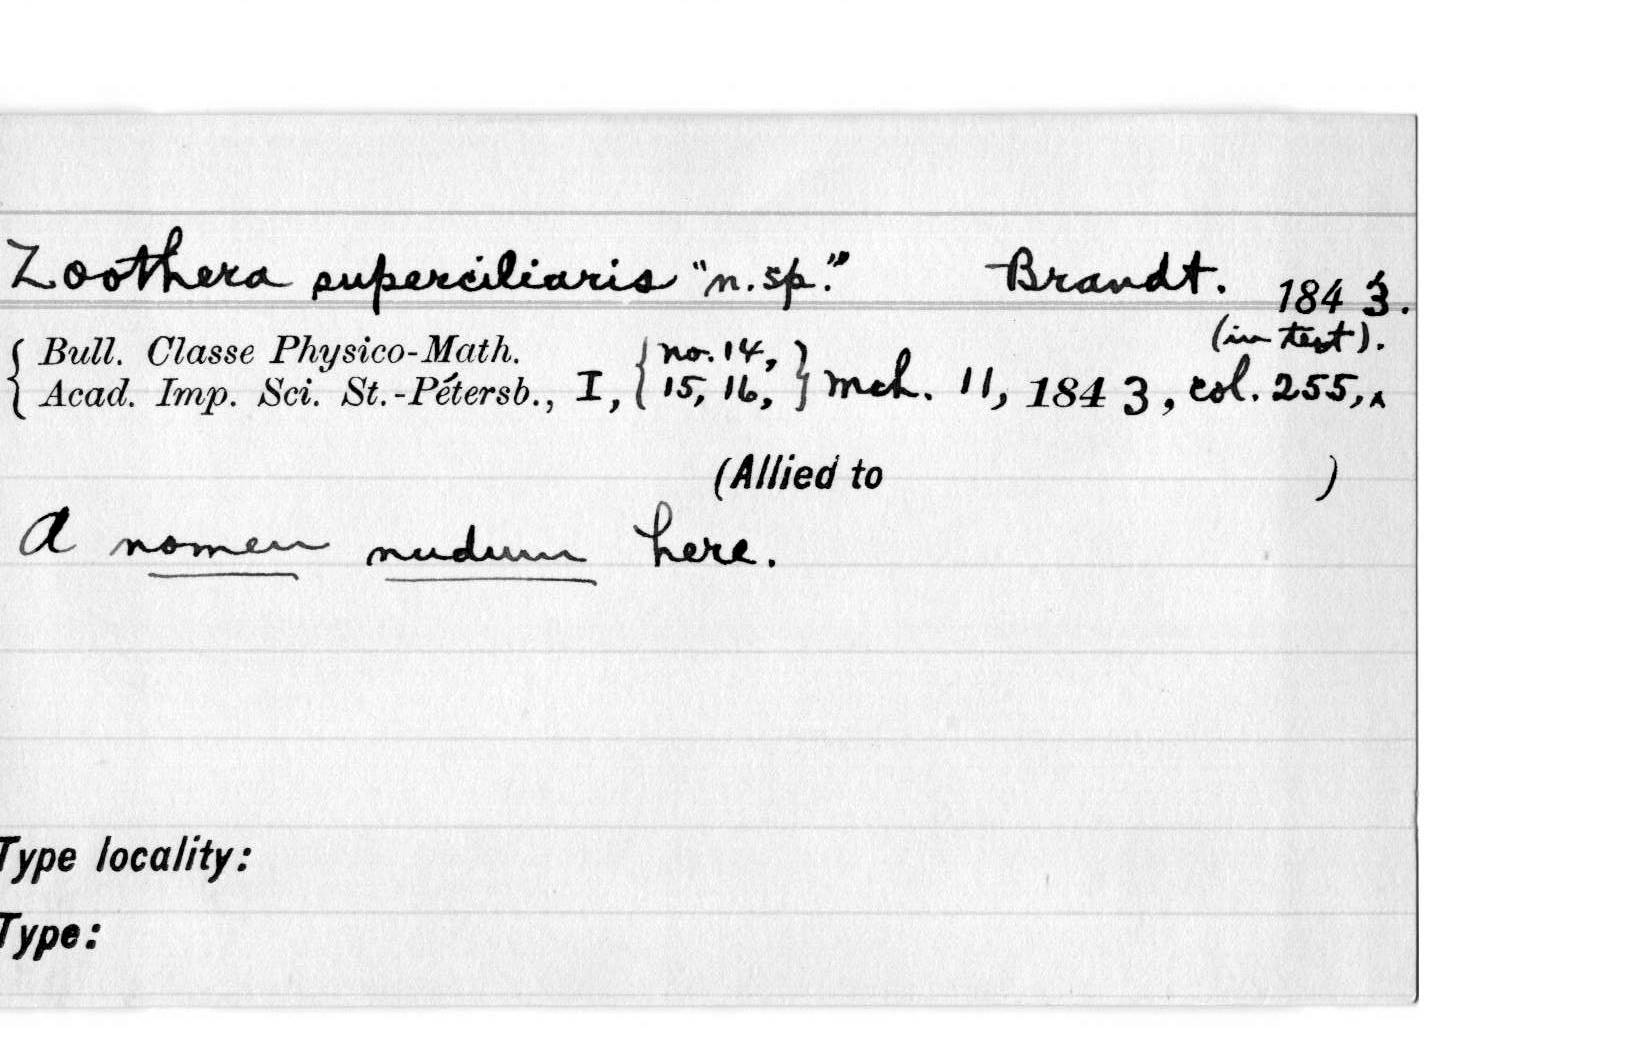 Zoothera superciliaris "n. sp." Brandt. 1843.
{ Bull. Classe Physico-Math. { no. 14, } (in text).
{ Acad. Imp. Sci. St.-Pétersb., I, { 15, 16, } Mch. 11, 1843, col. 255, ‸
(Allied to )
A nomen nudum here.
Type locality:
Type: